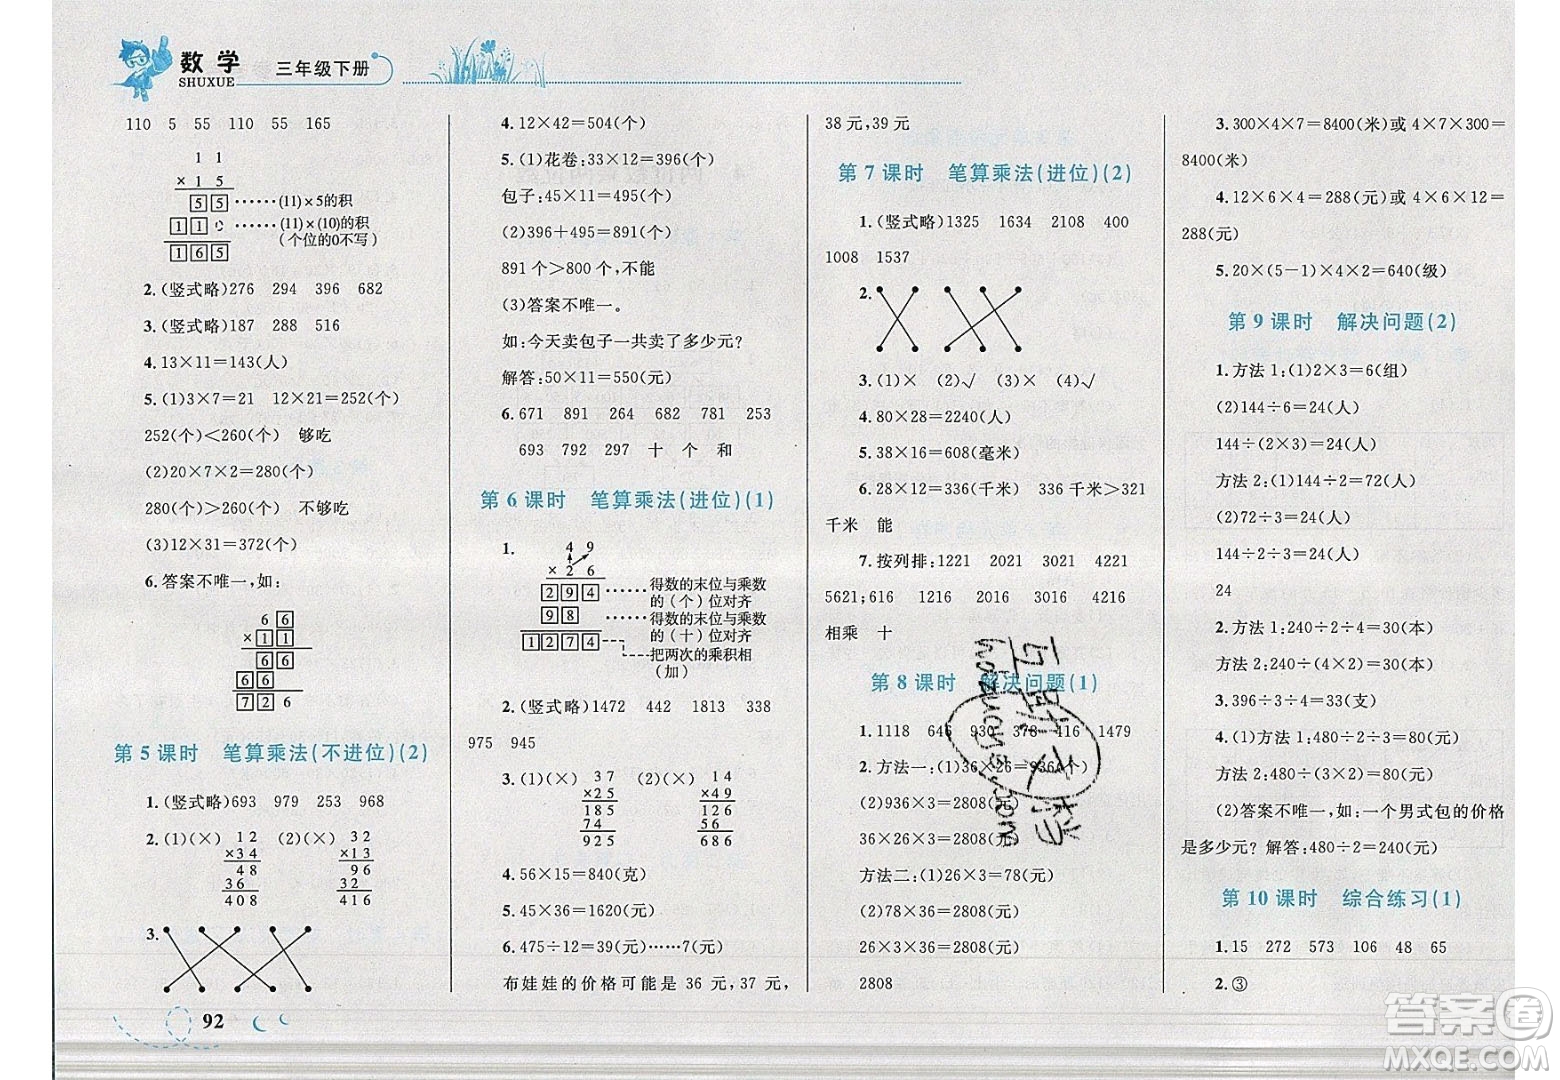 数学
SHUXUE
三年级下册
110 5 55 110 55 165
1 1
× 1 5
5 5 ……(11)×5的积
1 1 ……(11)×(10)的积
(个位的0不写)
1 6 5
2.(竖式略)276 294 396 682
3.(竖式略)187 288 516
4.13×11=143(人)
5.(1)3×7=21 12×21=252(个)
252(个)<260(个) 够吃
(2)20×7×2=280(个)
280(个)>260(个) 不够吃
(3)12×31=372(个)
6.答案不唯一,如:
6 6
× 1 1
6 6
6 6
7 2 6
第 5 课时 笔算乘法(不进位)(2)
1.(竖式略)693 979 253 968
2.(1)(×) 1 2 (2)(×) 3 2
×3 4 ×1 3
4 8 9 6
3 6 3 2
4 0 8 4 1 6
3.
92
4.12×42=504(个)
5.(1)花卷:33×12=396(个)
包子:45×11=495(个)
(2)396+495=891(个)
891 个>800 个,不能
(3)答案不唯一。
如:今天卖包子一共卖了多少元?
解答:50×11=550(元)
6.671 891 264 682 781 253
693 792 297 十 个 和
第 6 课时 笔算乘法(进位)(1)
1. 4 9
× 2 6
2 9 4 ……得数的末位与乘数
的(个)位对齐
9 8 ……得数的末位与乘数
的(十)位对齐
1 2 7 4 把两次的乘积相
(加)
2.(竖式略)1472 442 1813 338
975 945
3.(1)(×) 3 7 (2)(×) 1 4
×2 5 ×4 9
1 8 5 1 2 6
7 4 5 6
9 2 5 6 8 6
4.56×15=840(克)
5.45×36=1620(元)
6.475÷12=39(元)……7(元)
布娃娃的价格可能是 36 元,37 元,
38 元,39 元
第 7 课时 笔算乘法(进位)(2)
1.(竖式略)1325 1634 2108 400
1008 1537
2.
3.(1)× (2)√ (3)× (4)√
4.80×28=2240(人)
5.38×16=608(毫米)
6.28×12=336(千米) 336 千米>321
千米 能
7.按列排:1221 2021 3021 4221
5621;616 1216 2016 3016 4216
相乘 十
第 8 课时 解决问题(1)
1.1118 646 930 378 416 1479
2.方法一:(1)36×26=936(个)
(2)936×3=2808(元)
36×26×3=2808(元)
方法二:(1)26×3=78(元)
(2)78×36=2808(元)
26×3×36=2808(元)
2808
3.300×4×7=8400(米)或 4×7×300=
8400(米)
4.12×6×4=288(元)或 4×6×12=
288(元)
5.20×(5-1)×4×2=640(级)
第 9 课时 解决问题(2)
1.方法 1:(1)2×3=6(组)
(2)144÷6=24(人)
144÷(2×3)=24(人)
方法 2:(1)144÷2=72(人)
(2)72÷3=24(人)
144÷2÷3=24(人)
24
2.方法 1:240÷2÷4=30(本)
方法 2:240÷(2×4)=30(本)
3.396÷3÷4=33(支)
4.(1)方法 1:480÷2÷3=80(元)
方法 2:480÷(2×3)=80(元)
(2)答案不唯一,如:一个男式包的价格
是多少元? 解答:480÷2=240(元)
第 10 课时 综合练习(1)
1.15 272 573 106 48 65
2.③
答案圈
MXQE.COM